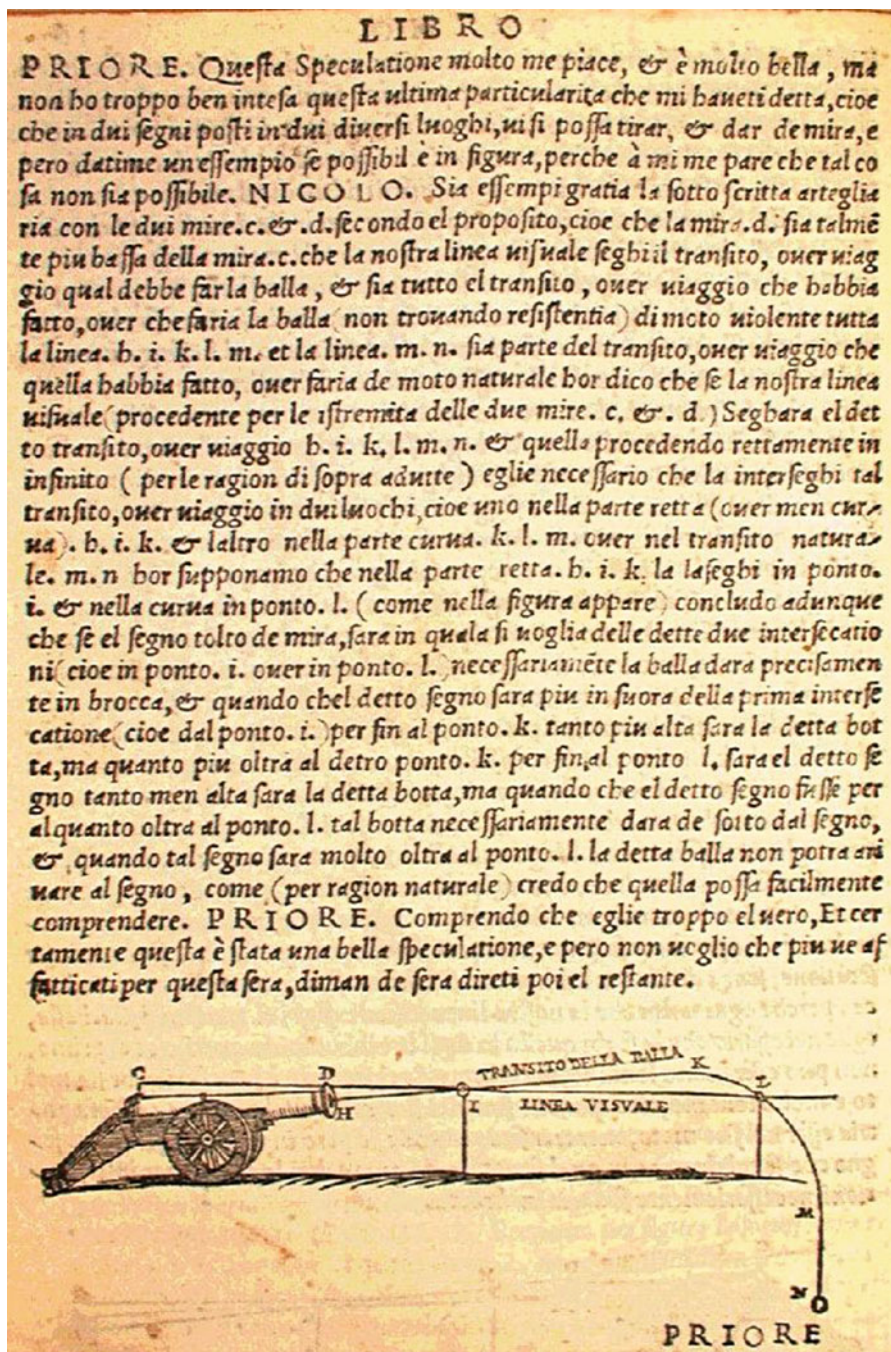 LIBRO
PRIORE. Questa Speculatione molto me piace, & è molto bella, ma
non ho troppo ben intesa questa ultima particularita che mi haueti detta, cioe
che in dui segni posti in dui diuersi luoghi, ui si possa tirar, & dar de mira, e
pero datime un essempio se possibil è in figura, perche à mi me pare che tal co
sa non sia possibile. NICOLO. Sia essempi gratia la sotto scritta arteglia
ria con le dui mire.c.&.d.secondo el proposito, cioe che la mira.d. sia talmē
te piu bassa della mira.c.che la nostra linea uisuale seghi il transito, ouer uiag
gio qual debbe far la balla, & sia tutto el transito, ouer uiaggio che habbia
fatto, ouer che faria la balla (non trouando resistentia) di moto uiolente tutta
la linea. h. i. k. l. m. et la linea. m. n. sia parte del transito, ouer uiaggio che
quella habbia fatto, ouer faria de moto naturale hor dico che se la nostra linea
uisuale (procedente per le istremita delle due mire. c. &. d.) Seghara el det
to transito, ouer uiaggio h. i. k. l. m. n. & quella procedendo rettamente in
infinito ( per le ragion di sopra adutte ) eglie necessario che la interseghi tal
transito, ouer uiaggio in dui luochi, cioe uno nella parte retta (ouer men cur-
ua). h. i. k. & laltro nella parte curua. k. l. m. ouer nel transito natura-
le. m. n hor supponamo che nella parte retta. h. i. k. la laseghi in ponto.
i. & nella curua in ponto. l. ( come nella figura appare) concludo adunque
che se el segno tolto de mira, sara in quala si uoglia delle dette due intersecatio
ni (cioe in ponto. i. ouer in ponto. l.) necessariamēte la balla dara precisamen
te in brocca, & quando chel detto segno sara piu in fuora della prima interse
catione (cioe dal ponto. i.) per fin al ponto. k. tanto piu alta sara la detta bot
ta, ma quanto piu oltra al detro ponto. k. per fin, al ponto l. sara el detto se
gno tanto men alta sara la detta botta, ma quando che el detto segno fusse per
alquanto oltra al ponto. l. tal botta necessariamente dara de sotto dal segno,
&, quando tal segno sara molto oltra al ponto. l. la detta balla non potra ari
uare al segno, come (per ragion naturale) credo che quella possa facilmente
comprendere. PRIORE. Comprendo che eglie troppo el uero, Et cer
tamente questa è stata una bella speculatione, e pero non uoglio che piu ue af
fatticati per questa sera, diman de sera direti poi el restante.
C D TRANSITO DELLA BALLA K L
H I LINEA VISVALE
M
N
PRIORE